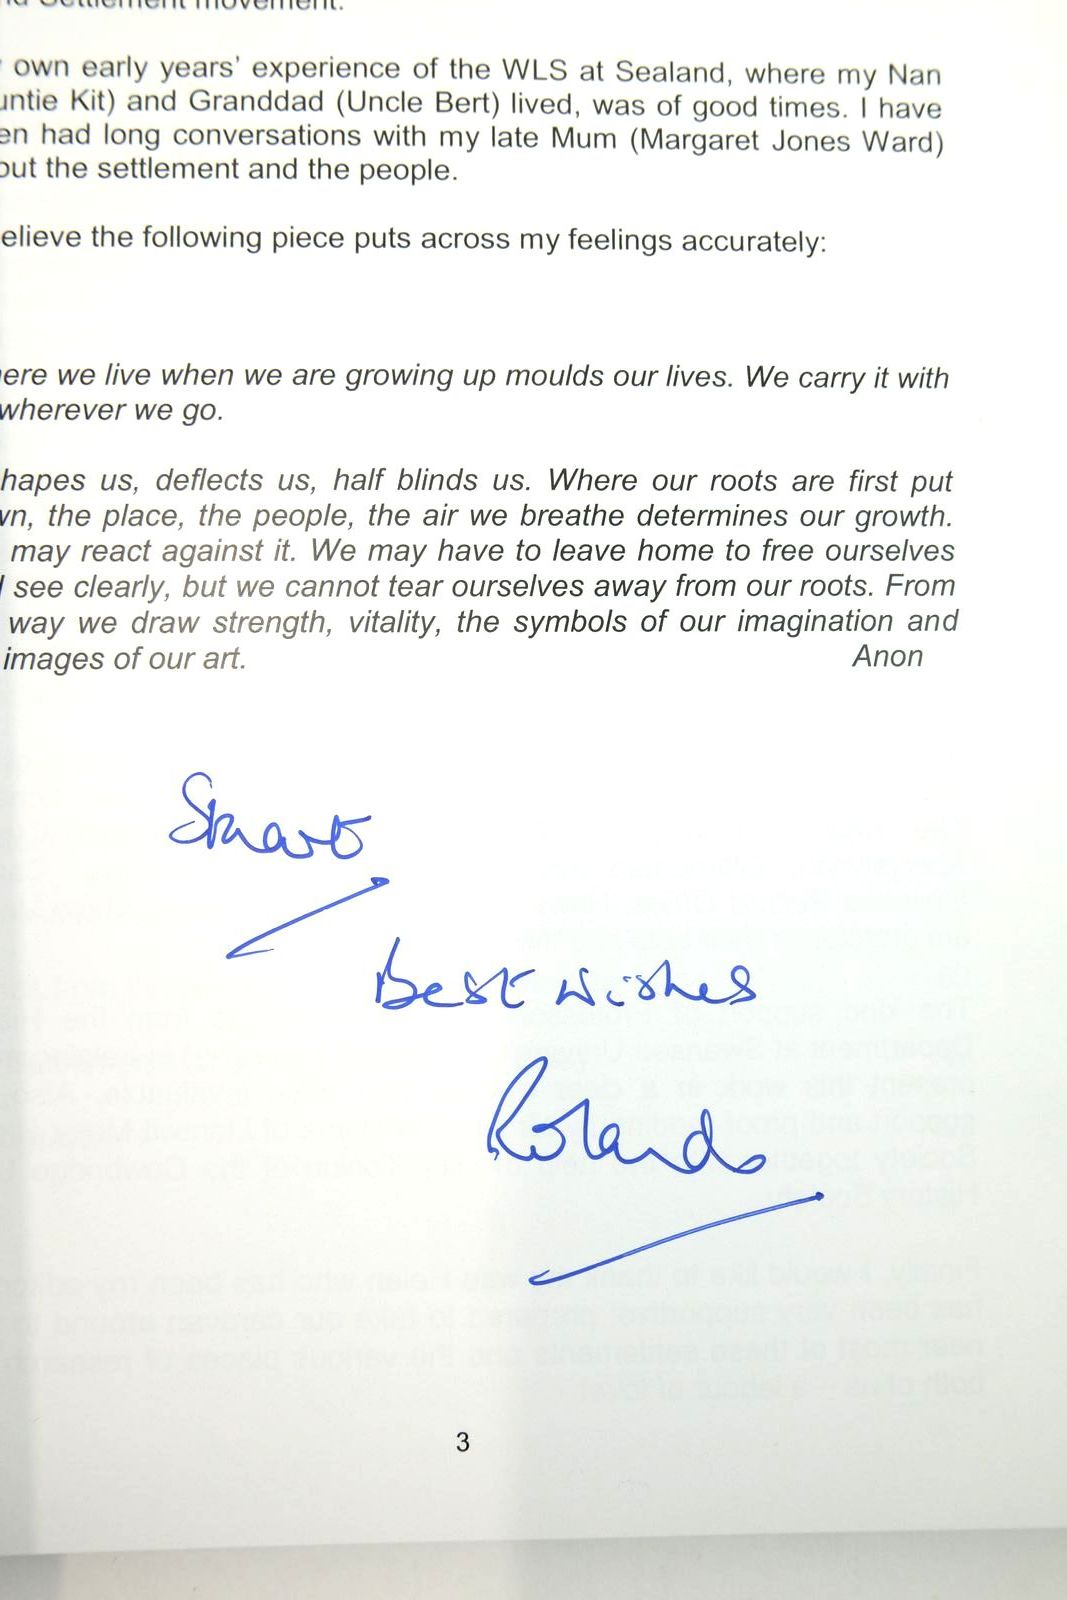 nd Settlement movement.
own early years' experience of the WLS at Sealand, where my Nan
untie Kit) and Granddad (Uncle Bert) lived, was of good times. I have
en had long conversations with my late Mum (Margaret Jones Ward)
out the settlement and the people.
elieve the following piece puts across my feelings accurately:
ere we live when we are growing up moulds our lives. We carry it with
wherever we go.
hapes us, deflects us, half blinds us. Where our roots are first put
wn, the place, the people, the air we breathe determines our growth.
may react against it. We may have to leave home to free ourselves
see clearly, but we cannot tear ourselves away from our roots. From
way we draw strength, vitality, the symbols of our imagination and
images of our art. Anon
Stuart
Best wishes
Roland
3